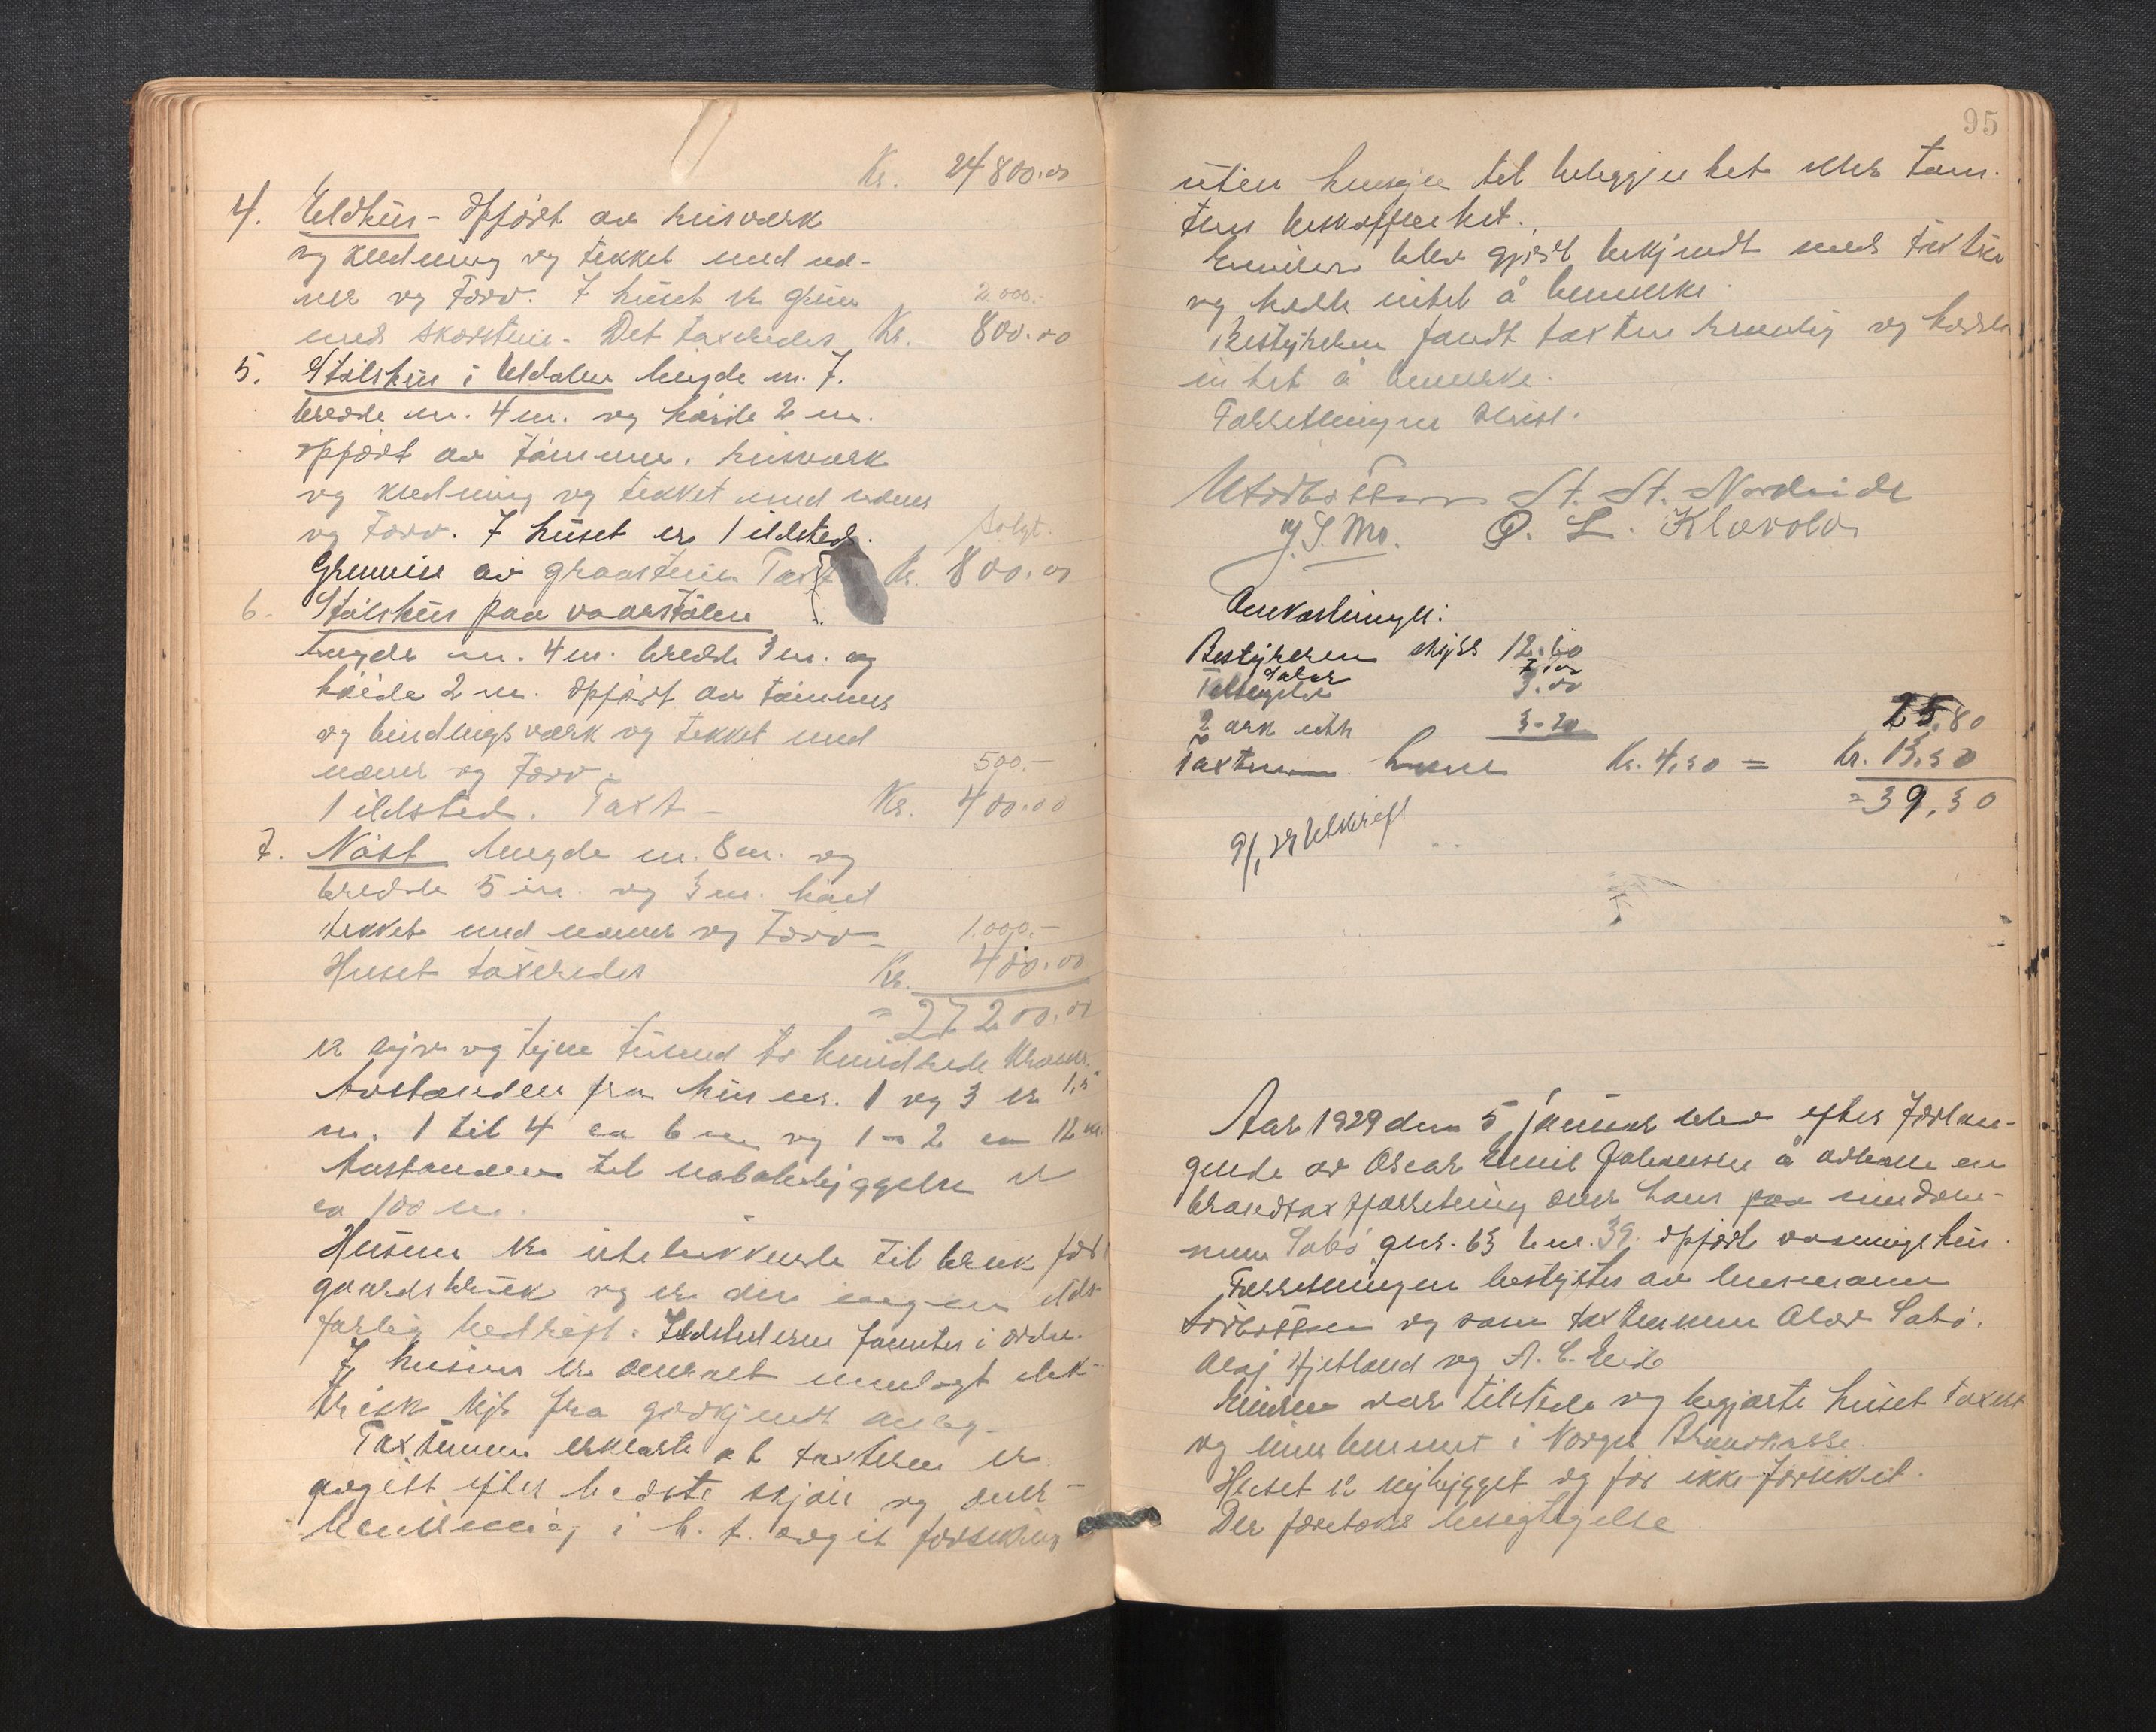 Kr. 24800.00
4. Eldhus - Opført av husværk
og kledning og tekket med næ-
ver og Torv. I huset er grue 2.000.-
med skorstein. Det taxeredes Kr. 800.00
5. Stølshus i Uldalen lengde m. 7.
bredde m. 4 m. og høide 2 m.
opført av tømmer, husværk
og kledning og tekket med næver
og Torv. I huset er 1 ildsted. Solgt.
Grunnen av graastein Taxt Kr. 800.00
6. Stølshus paa vaarstølen
lengde m. 4 m. bredde 3 m. og
høide 2 m. Opført av tømmer
og bindingsværk og tekket med
næver og Torv. 500.-
1 ildsted. Taxt - Kr. 400.00
7. Nøst lengde m. 8 m. og
bredde 5 m. og 3 m. høit
tekket med næver og Torv - 1.000.-
Huset taxeredes Kr. 400.00
= 27200.00
er syv og tyve tusend to hundrede Kroner.
Avstanden fra hus nr. 1 og 3 er 1,5
m. 1 til 4 ca 6 m og 1 - 2 ca 12 m.
Avstanden til nabobebyggelse er
ca 100 m.
Husene er utelukkende til bruk for
gaardsbruk og er der ingen ilds-
farlig bedrift. Ildstederne fantes i orden.
I husene er overalt innlagt elek-
trisk lys fra godkjendt anleg.
Taxtmenn erklærte at taxten er
avgitt efter bedste skjøn og over-
bevisning i h. t. avgit forsikring
95
uten hensyn til beliggenhet eller tom-
tens beskaffenhet.
Eieren blev gjort bekjendt med taxten
og hadde intet å bemerke.
Bestyreren fandt taxten humlig og hadde
intet å bemerke.
Forretningen sluttet.
St. St. Nordeide
J. S. Mo. O. L. Klævold
Omkostninger:
Bestyreren skyss 12.60
Salær 7.00
3.00
2 ark 3-20 25.80
Taxtmenn Kr. 4,50 = Kr. 13.50
= 39,30
9/1 29 Utskrift
Aar 1929 den 5 januar blev efter forlan-
gende av Oscar Emil Johansen å avholde en
brandtaxtforretning over hans paa eiendom-
men Sabø gnr. 63 bnr. 39. opført vaaningshus.
Forretningen bestyrtes av lensmann
og som taxtmenn Olav Sabø.
Olaj Hjetland og A. E. Eide
Eieren var tilstede og begjærte huset taxert
og innlemmet i Norges Brannkasse.
Huset er nybygget og før ikke forsikret.
Der foretoks besigtigelse